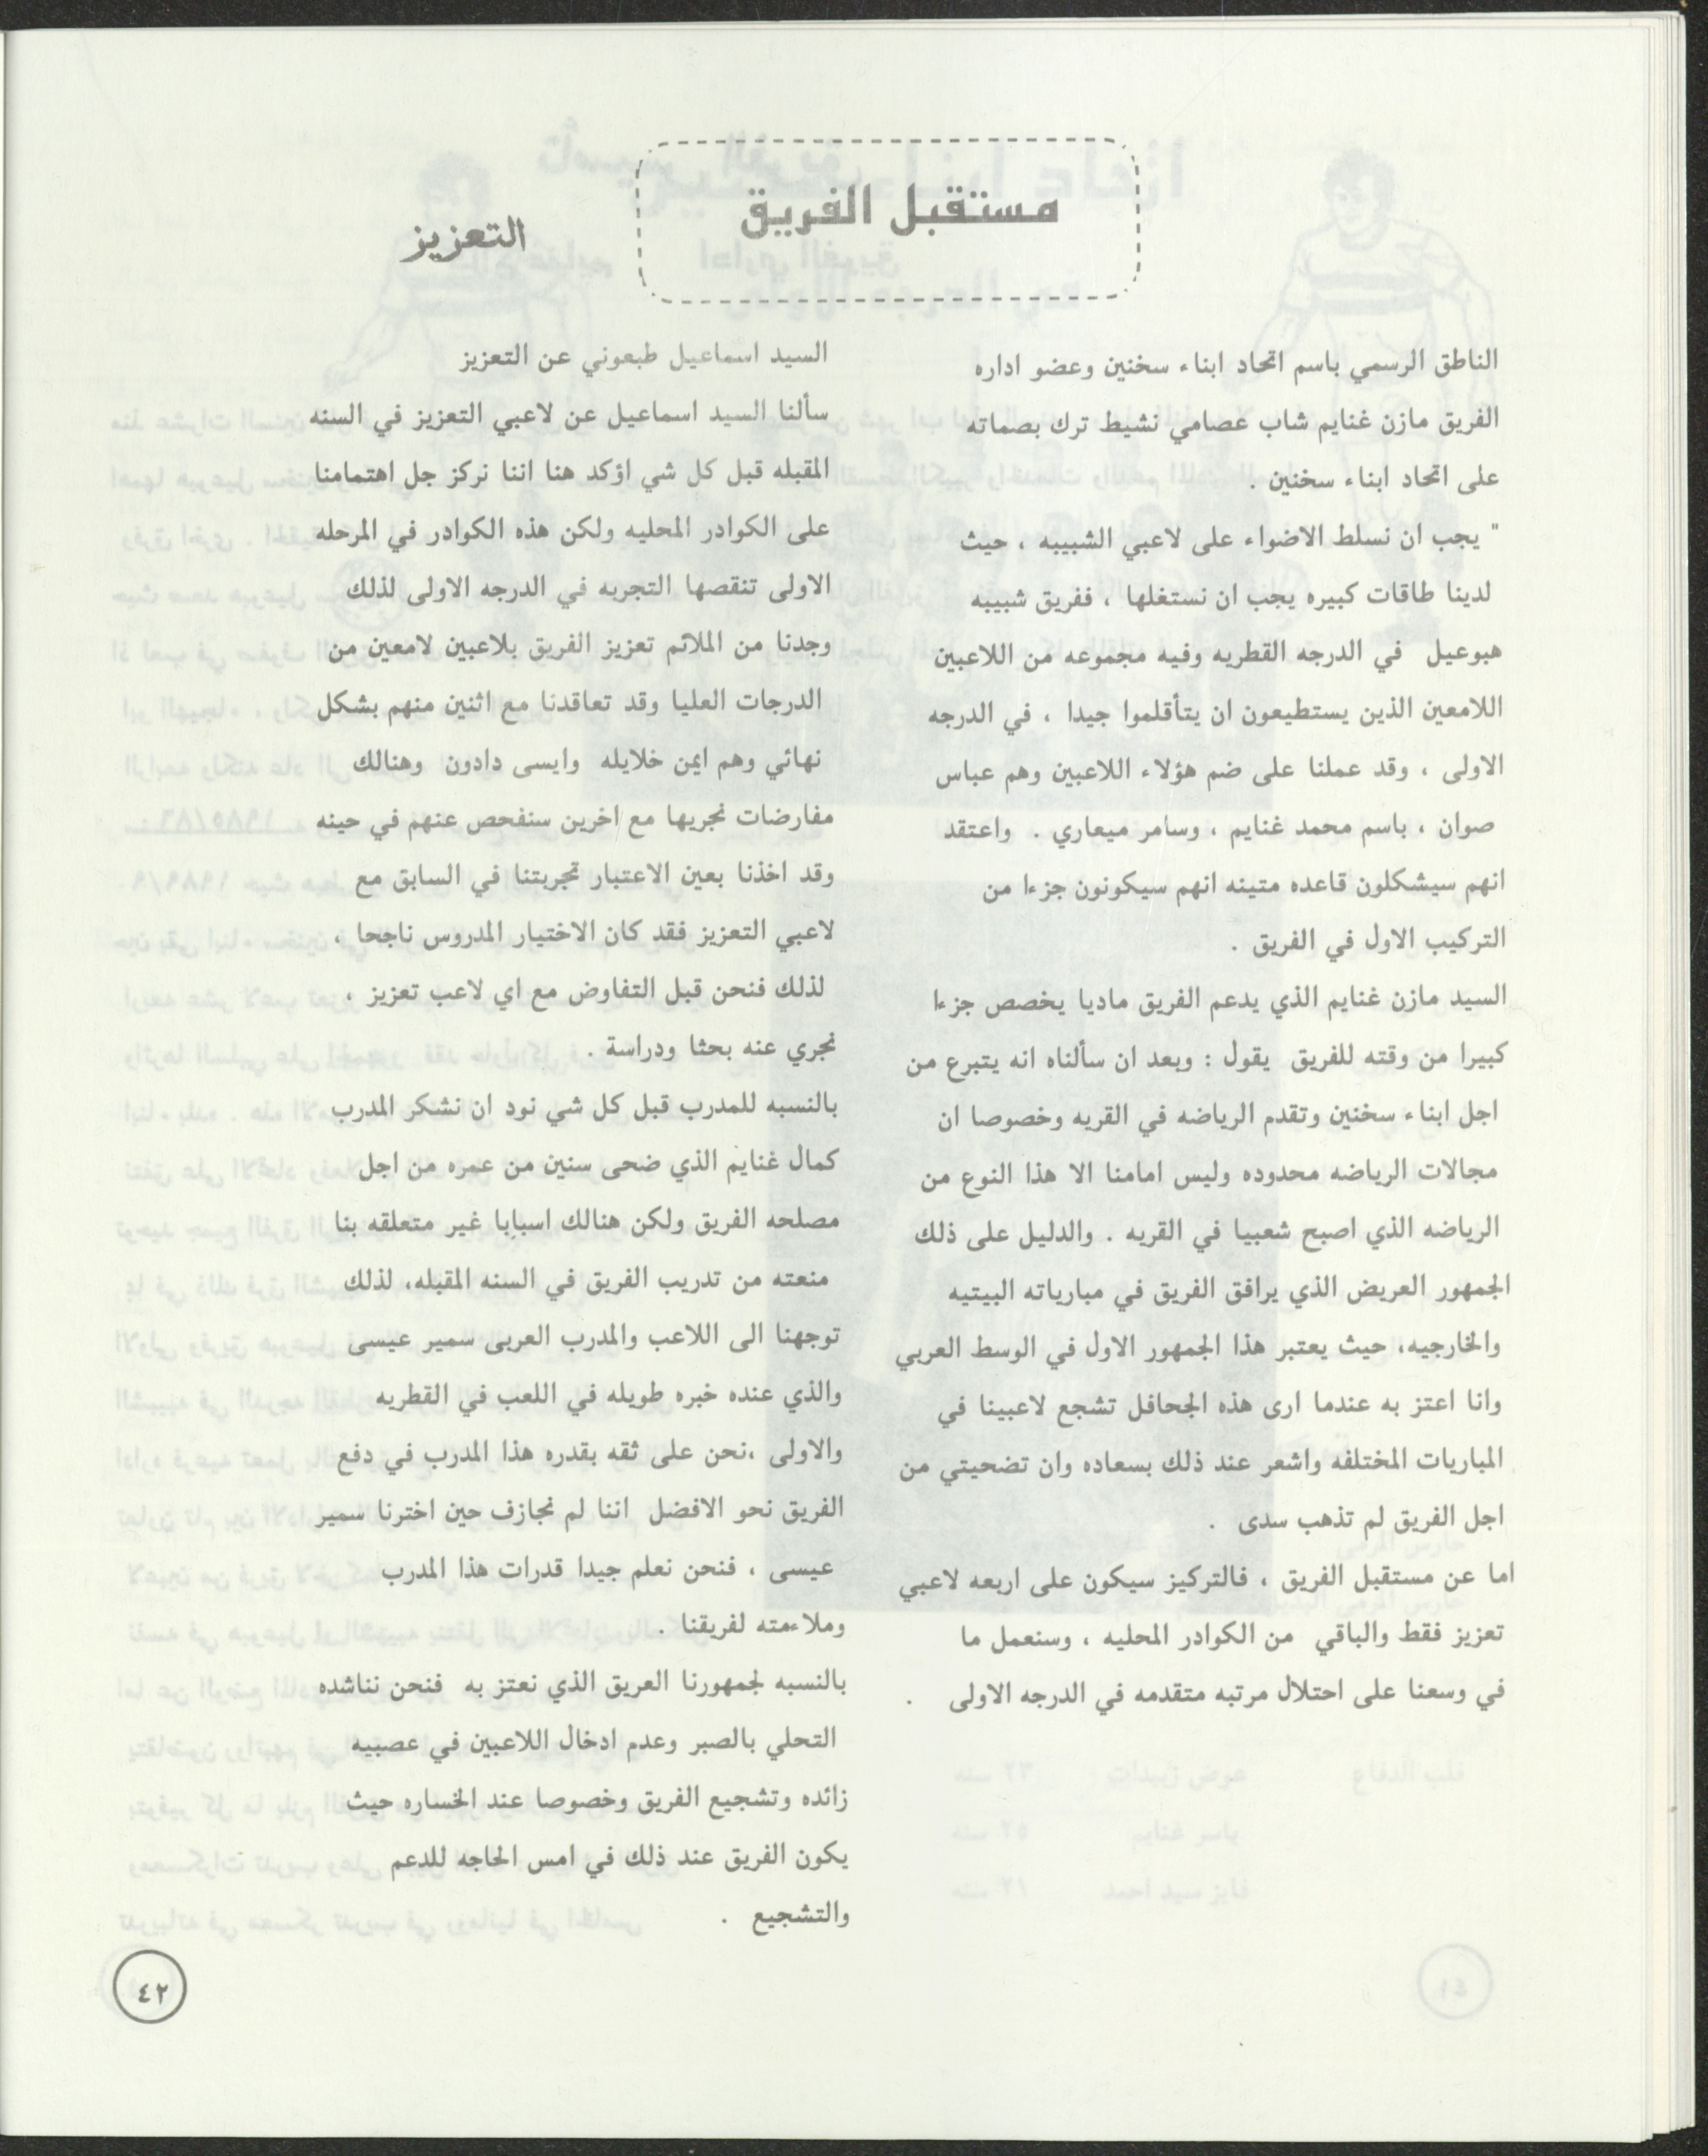 مستقبل الفريق
الناطق الرسمي باسم اتحاد ابناء سخنين وعضو اداره
الفريق مازن غنايم شاب عصامي نشيط ترك بصماته
على اتحاد ابناء سخنين .
" يجب ان نسلط الاضواء على لاعبي الشبيبه ، حيث
لدينا طاقات كبيره يجب ان نستغلها ، ففريق شبيبه
هبوعيل في الدرجه القطريه وفيه مجموعه من اللاعبين
اللامعين الذين يستطيعون ان يتأقلموا جيدا ، في الدرجه
الاولى ، وقد عملنا على ضم هؤلاء اللاعبين وهم عباس
صوان ، باسم محمد غنايم ، وسامر ميعاري . واعتقد
انهم سيشكلون قاعده متينه انهم سيكونون جزءا من
التركيب الاول في الفريق .
السيد مازن غنايم الذي يدعم الفريق ماديا يخصص جزءا
كبيرا من وقته للفريق يقول : وبعد ان سألناه انه يتبرع من
اجل ابناء سخنين وتقدم الرياضه في القريه وخصوصا ان
مجالات الرياضه محدوده وليس امامنا الا هذا النوع من
الرياضه الذي اصبح شعبيا في القريه . والدليل على ذلك
الجمهور العريض الذي يرافق الفريق في مبارياته البيتيه
والخارجيه، حيث يعتبر هذا الجمهور الاول في الوسط العربي
وانا اعتز به عندما ارى هذه الجحافل تشجع لاعبينا في
المباريات المختلفه واشعر عند ذلك بسعاده وان تضحيتي من
اجل الفريق لم تذهب سدى .
اما عن مستقبل الفريق ، فالتركيز سيكون على اربعه لاعبي
تعزيز فقط والباقي من الكوادر المحليه ، وسنعمل ما
في وسعنا على احتلال مرتبه متقدمه في الدرجه الاولى .
التعزيز
السيد اسماعيل طبعوني عن التعزيز
سألنا السيد اسماعيل عن لاعبي التعزيز في السنه
المقبله قبل كل شي اؤكد هنا اننا نركز جل اهتمامنا
على الكوادر المحليه ولكن هذه الكوادر في المرحله
الاولى تنقصها التجربه في الدرجه الاولى لذلك
وجدنا من الملائم تعزيز الفريق بلاعبين لامعين من
الدرجات العليا وقد تعاقدنا مع اثنين منهم بشكل
نهائي وهم ايمن خلايله وايسى دادون وهنالك
مفارضات نجريها مع اخرين سنفحص عنهم في حينه
وقد اخذنا بعين الاعتبار تجربتنا في السابق مع
لاعبي التعزيز فقد كان الاختيار المدروس ناجحا ،
لذلك فنحن قبل التفاوض مع اي لاعب تعزيز ،
نجري عنه بحثا ودراسة .
بالنسبه للمدرب قبل كل شي نود ان نشكر المدرب
كمال غنايم الذي ضحى سنين من عمره من اجل
مصلحه الفريق ولكن هنالك اسبابا غير متعلقه بنا
منعته من تدريب الفريق في السنه المقبله، لذلك
توجهنا الى اللاعب والمدرب العربى سمير عيسى
والذي عنده خبره طويله في اللعب في القطريه
والاولى ،نحن على ثقه بقدره هذا المدرب في دفع
الفريق نحو الافضل اننا لم نجازف حين اخترنا سمير
عيسى ، فنحن نعلم جيدا قدرات هذا المدرب
وملاءمته لفريقنا .
بالنسبه لجمهورنا العريق الذي نعتز به فنحن نناشده
التحلي بالصبر وعدم ادخال اللاعبين في عصبيه
زائده وتشجيع الفريق وخصوصا عند الخساره حيث
يكون الفريق عند ذلك في امس الحاجه للدعم
والتشجيع .
٤٢